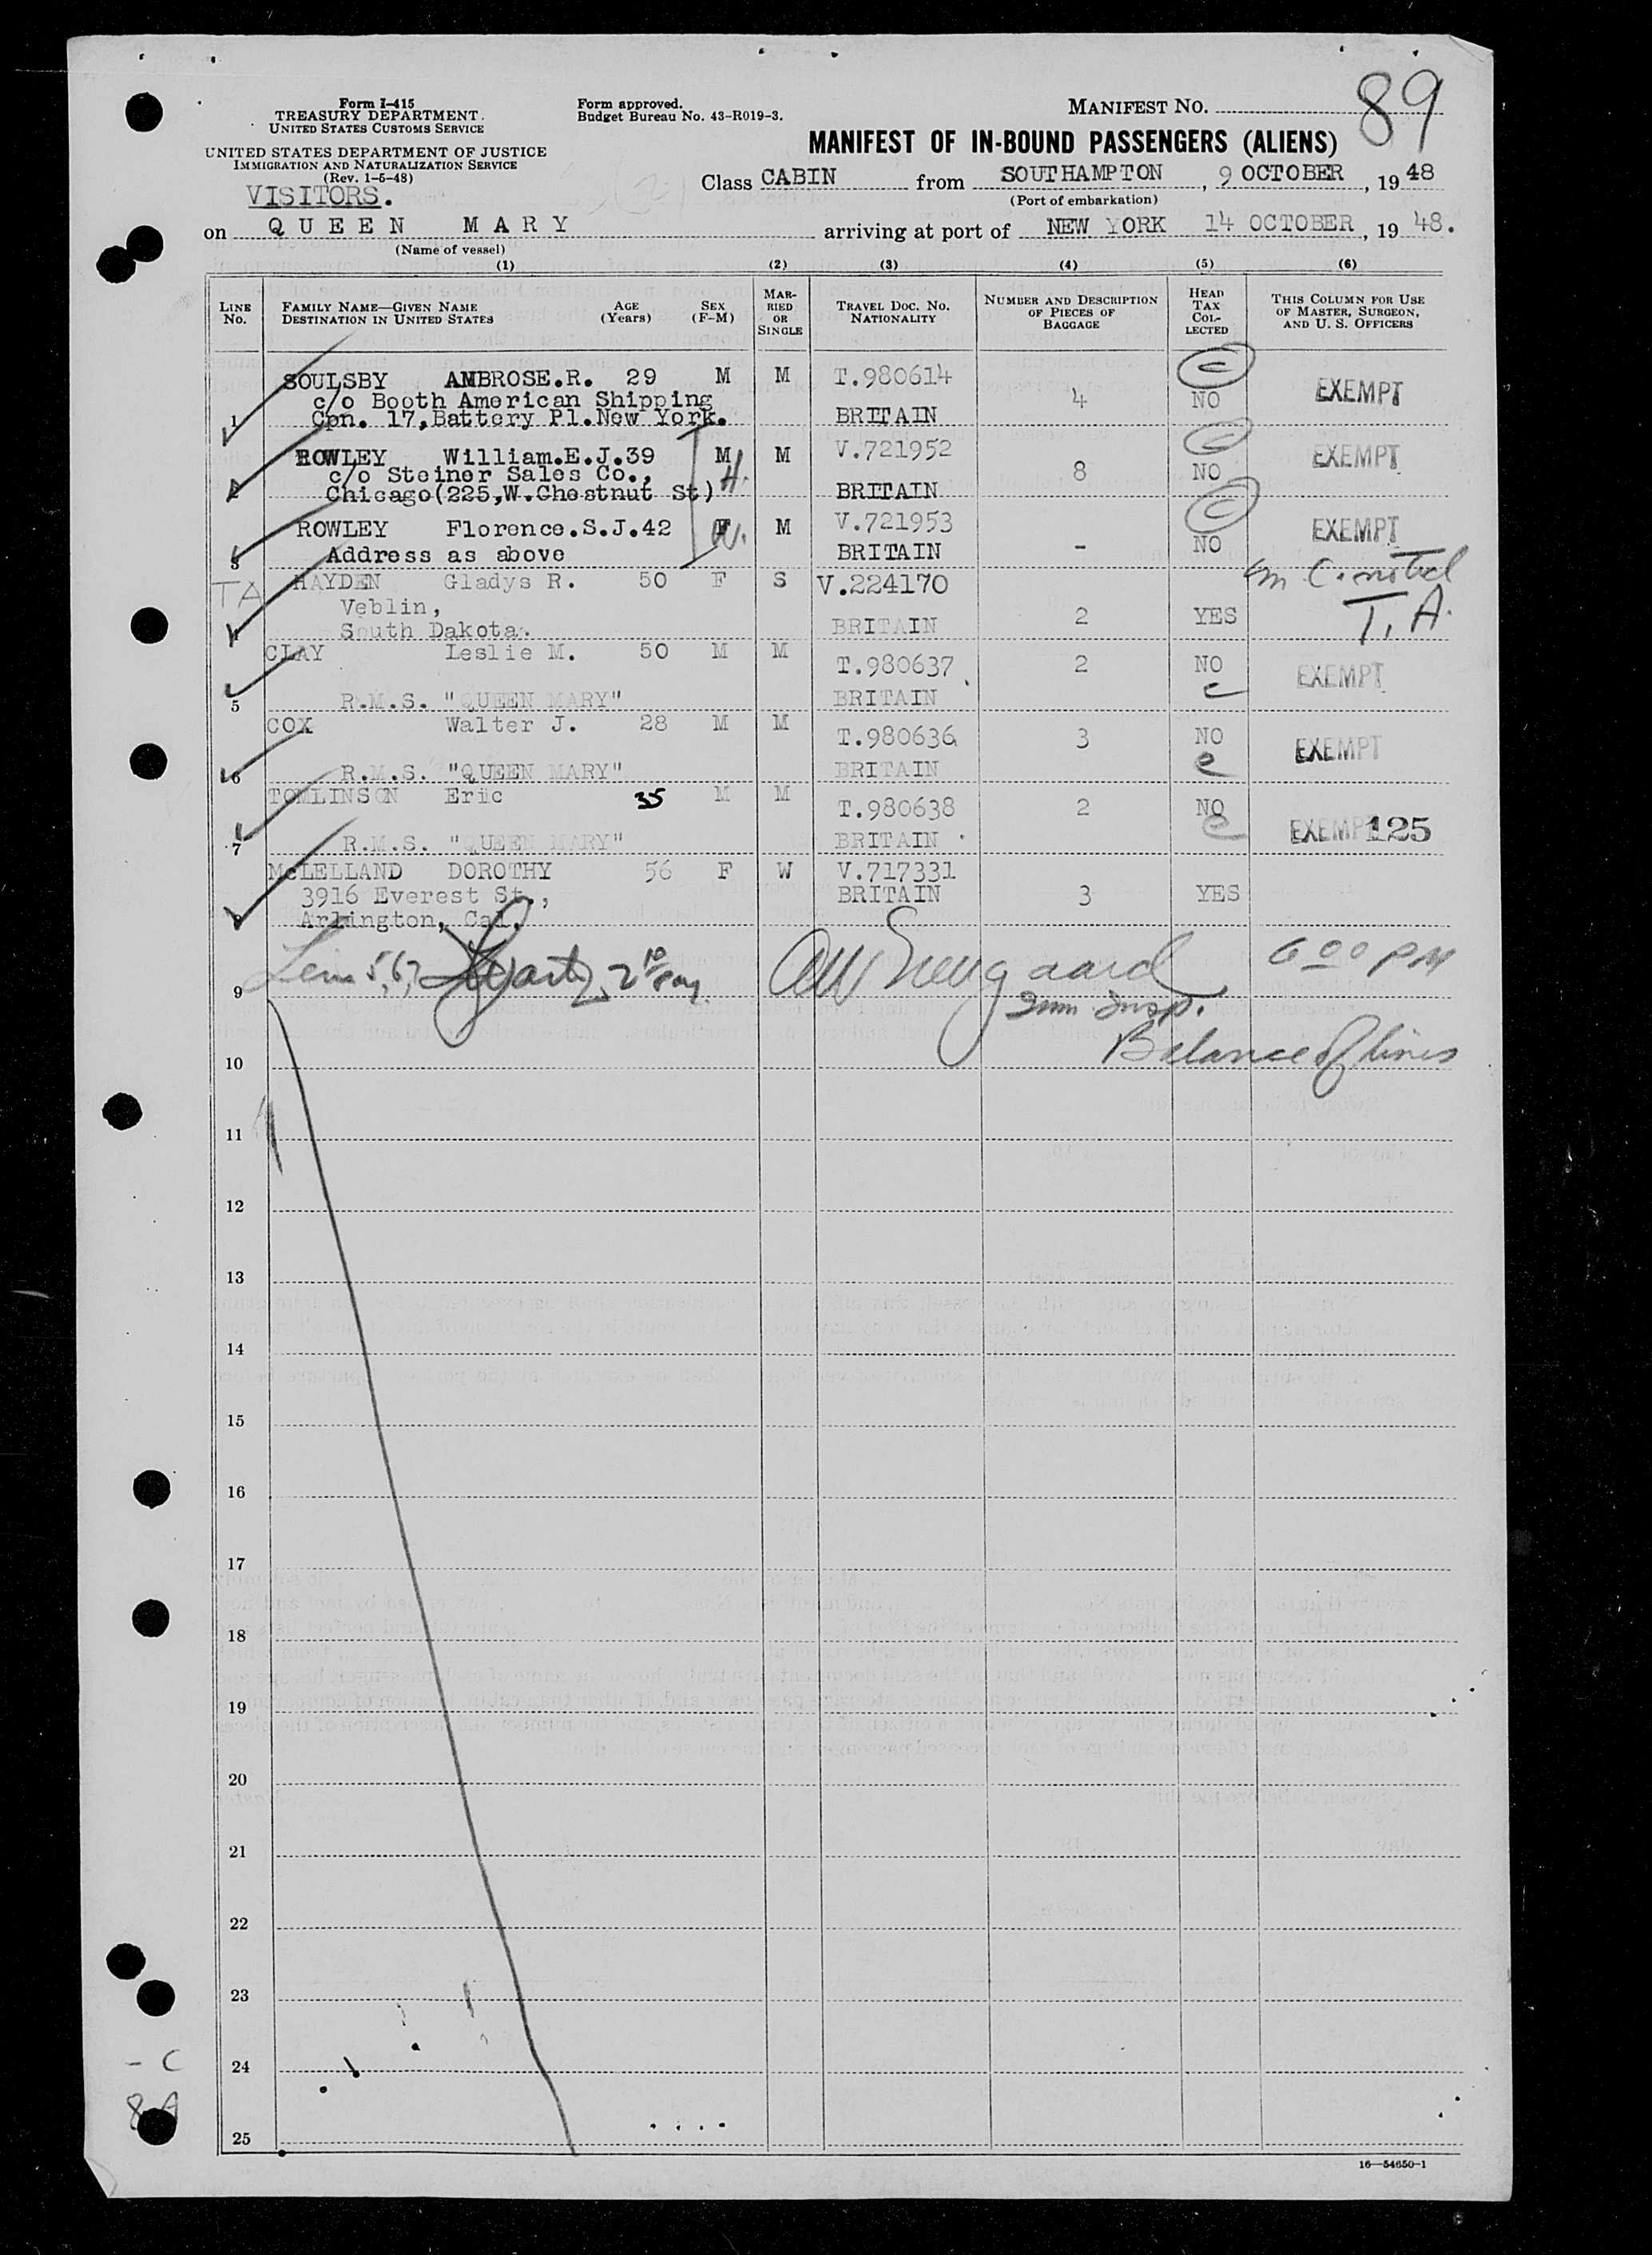 89
Form I-415
TREASURY DEPARTMENT.
UNITED STATES CUSTOMS SERVICE
Form approved.
Budget Bureau No. 43-R019-3.
MANIFEST NO.
UNITED STATES DEPARTMENT OF JUSTICE
IMMIGRATION AND NATURALIZATION SERVICE
(Rev. 1-5-48)
MANIFEST OF IN-BOUND PASSENGERS (ALIENS)
VISITORS.
Class CABIN from SOUTHAMPTON, 9 OCTOBER, 19 48
(Port of embarkation)
on QUEEN MARY arriving at port of NEW YORK 14 OCTOBER, 19 48.
(Name of vessel)
(1) (2) (3) (4) (5) (6)
LINE No. FAMILY NAME—GIVEN NAME DESTINATION IN UNITED STATES AGE (Years) SEX (F-M) MARRIED OR SINGLE TRAVEL DOC. NO. NATIONALITY NUMBER AND DESCRIPTION OF PIECES OF BAGGAGE HEAD TAX COLLECTED THIS COLUMN FOR USE OF MASTER, SURGEON, AND U. S. OFFICERS
SOULSBY AMBROSE.R. 29 M M T.980614 C EXEMPT
c/o Booth American Shipping 4 NO
1 Cpn. 17,Battery Pl.New York. BRITAIN
ROWLEY William.E.J.39 M M V.721952 C EXEMPT
c/o Steiner Sales Co., H. 8 NO
2 Chicago(225,W.Chestnut St) BRITAIN
ROWLEY Florence.S.J.42 F W. M V.721953 C EXEMPT
3 Address as above BRITAIN - NO
TA HAYDEN Gladys R. 50 F S V.224170
Veblin, 2 YES T.A.
4 South Dakota. BRITAIN
CLAY Leslie M. 50 M M T.980637 2 NO EXEMPT
5 R.M.S. "QUEEN MARY" BRITAIN c
COX Walter J. 28 M M T.980636 3 NO EXEMPT
6 R.M.S. "QUEEN MARY" BRITAIN c
TOMLINSON Eric 35 M M T.980638 2 NO EXEMPT 125
7 R.M.S. "QUEEN MARY" BRITAIN c
McLELLAND DOROTHY 56 F W V.717331
3916 Everest St., BRITAIN 3 YES
8 Arlington, Cal.
5,6,7 6 00 PM
9 Imm Insp.
Balance of lines
10
11
12
13
14
15
16
17
18
19
20
21
22
23
- C
24
8 A
25
16—54650-1